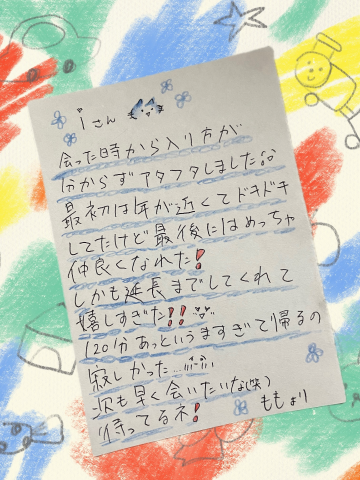 iさん
会った時から入り方が
分からずアタフタしました
最初は年が近くてドキドキ
してたけど最後にはめっちゃ
仲良くなれた!
しかも延長までしてくれて
嬉しすぎた!!
120分あっというますぎて帰るの
寂しかった...
次も早く会いたいな(笑)
待ってるネ!
ももより